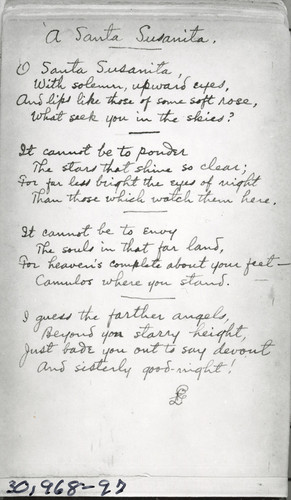 A Santa Susanita.
O Santa Susanita,
With solemn, upward eyes,
And lips like those of some soft rose,
What seek you in the skies?
It cannot be to ponder
The stars that shine so clear;
For far less bright the eyes of night
Than those which watch them here.
It cannot be to envy
The souls in that far land,
For heaven's complete about your feet—
Camulos where you stand.
I guess the farther angels,
Beyond yon starry height,
Just bade you out to say devout
And sisterly good-night!
30,968-97